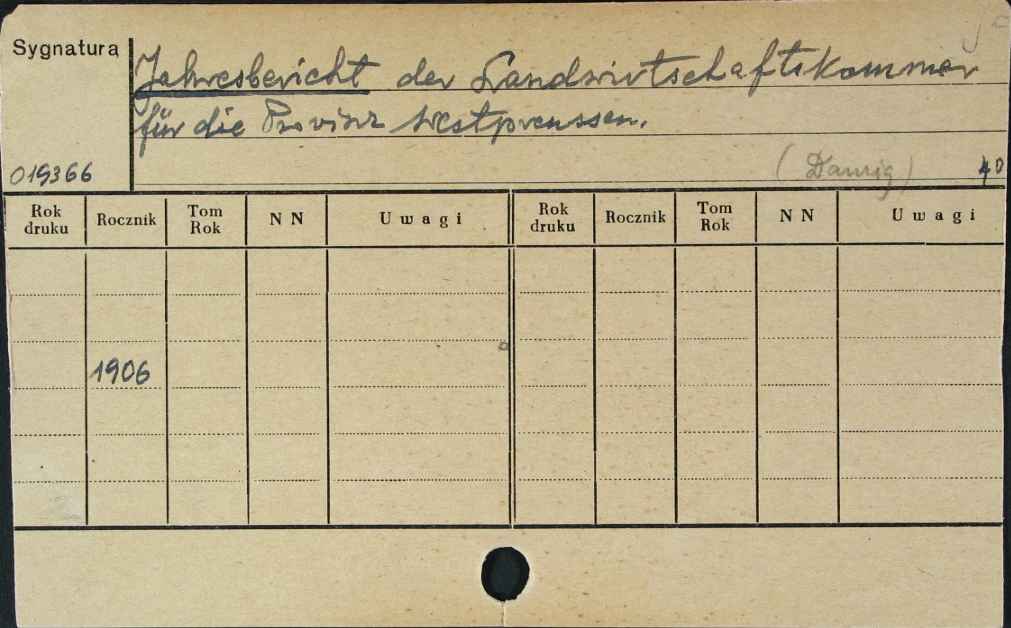 Sygnatura
Jahresbericht der Landwirtschaftskammer
für die Provinz Westpreussen.
019366
(Danzig)
40
Rok druku Rocznik Tom Rok N N Uwagi Rok druku Rocznik Tom Rok N N Uwagi
1906